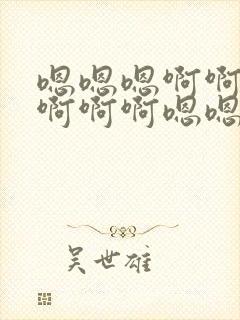 嗯嗯嗯啊啊
啊啊啊嗯嗯
吴世雄